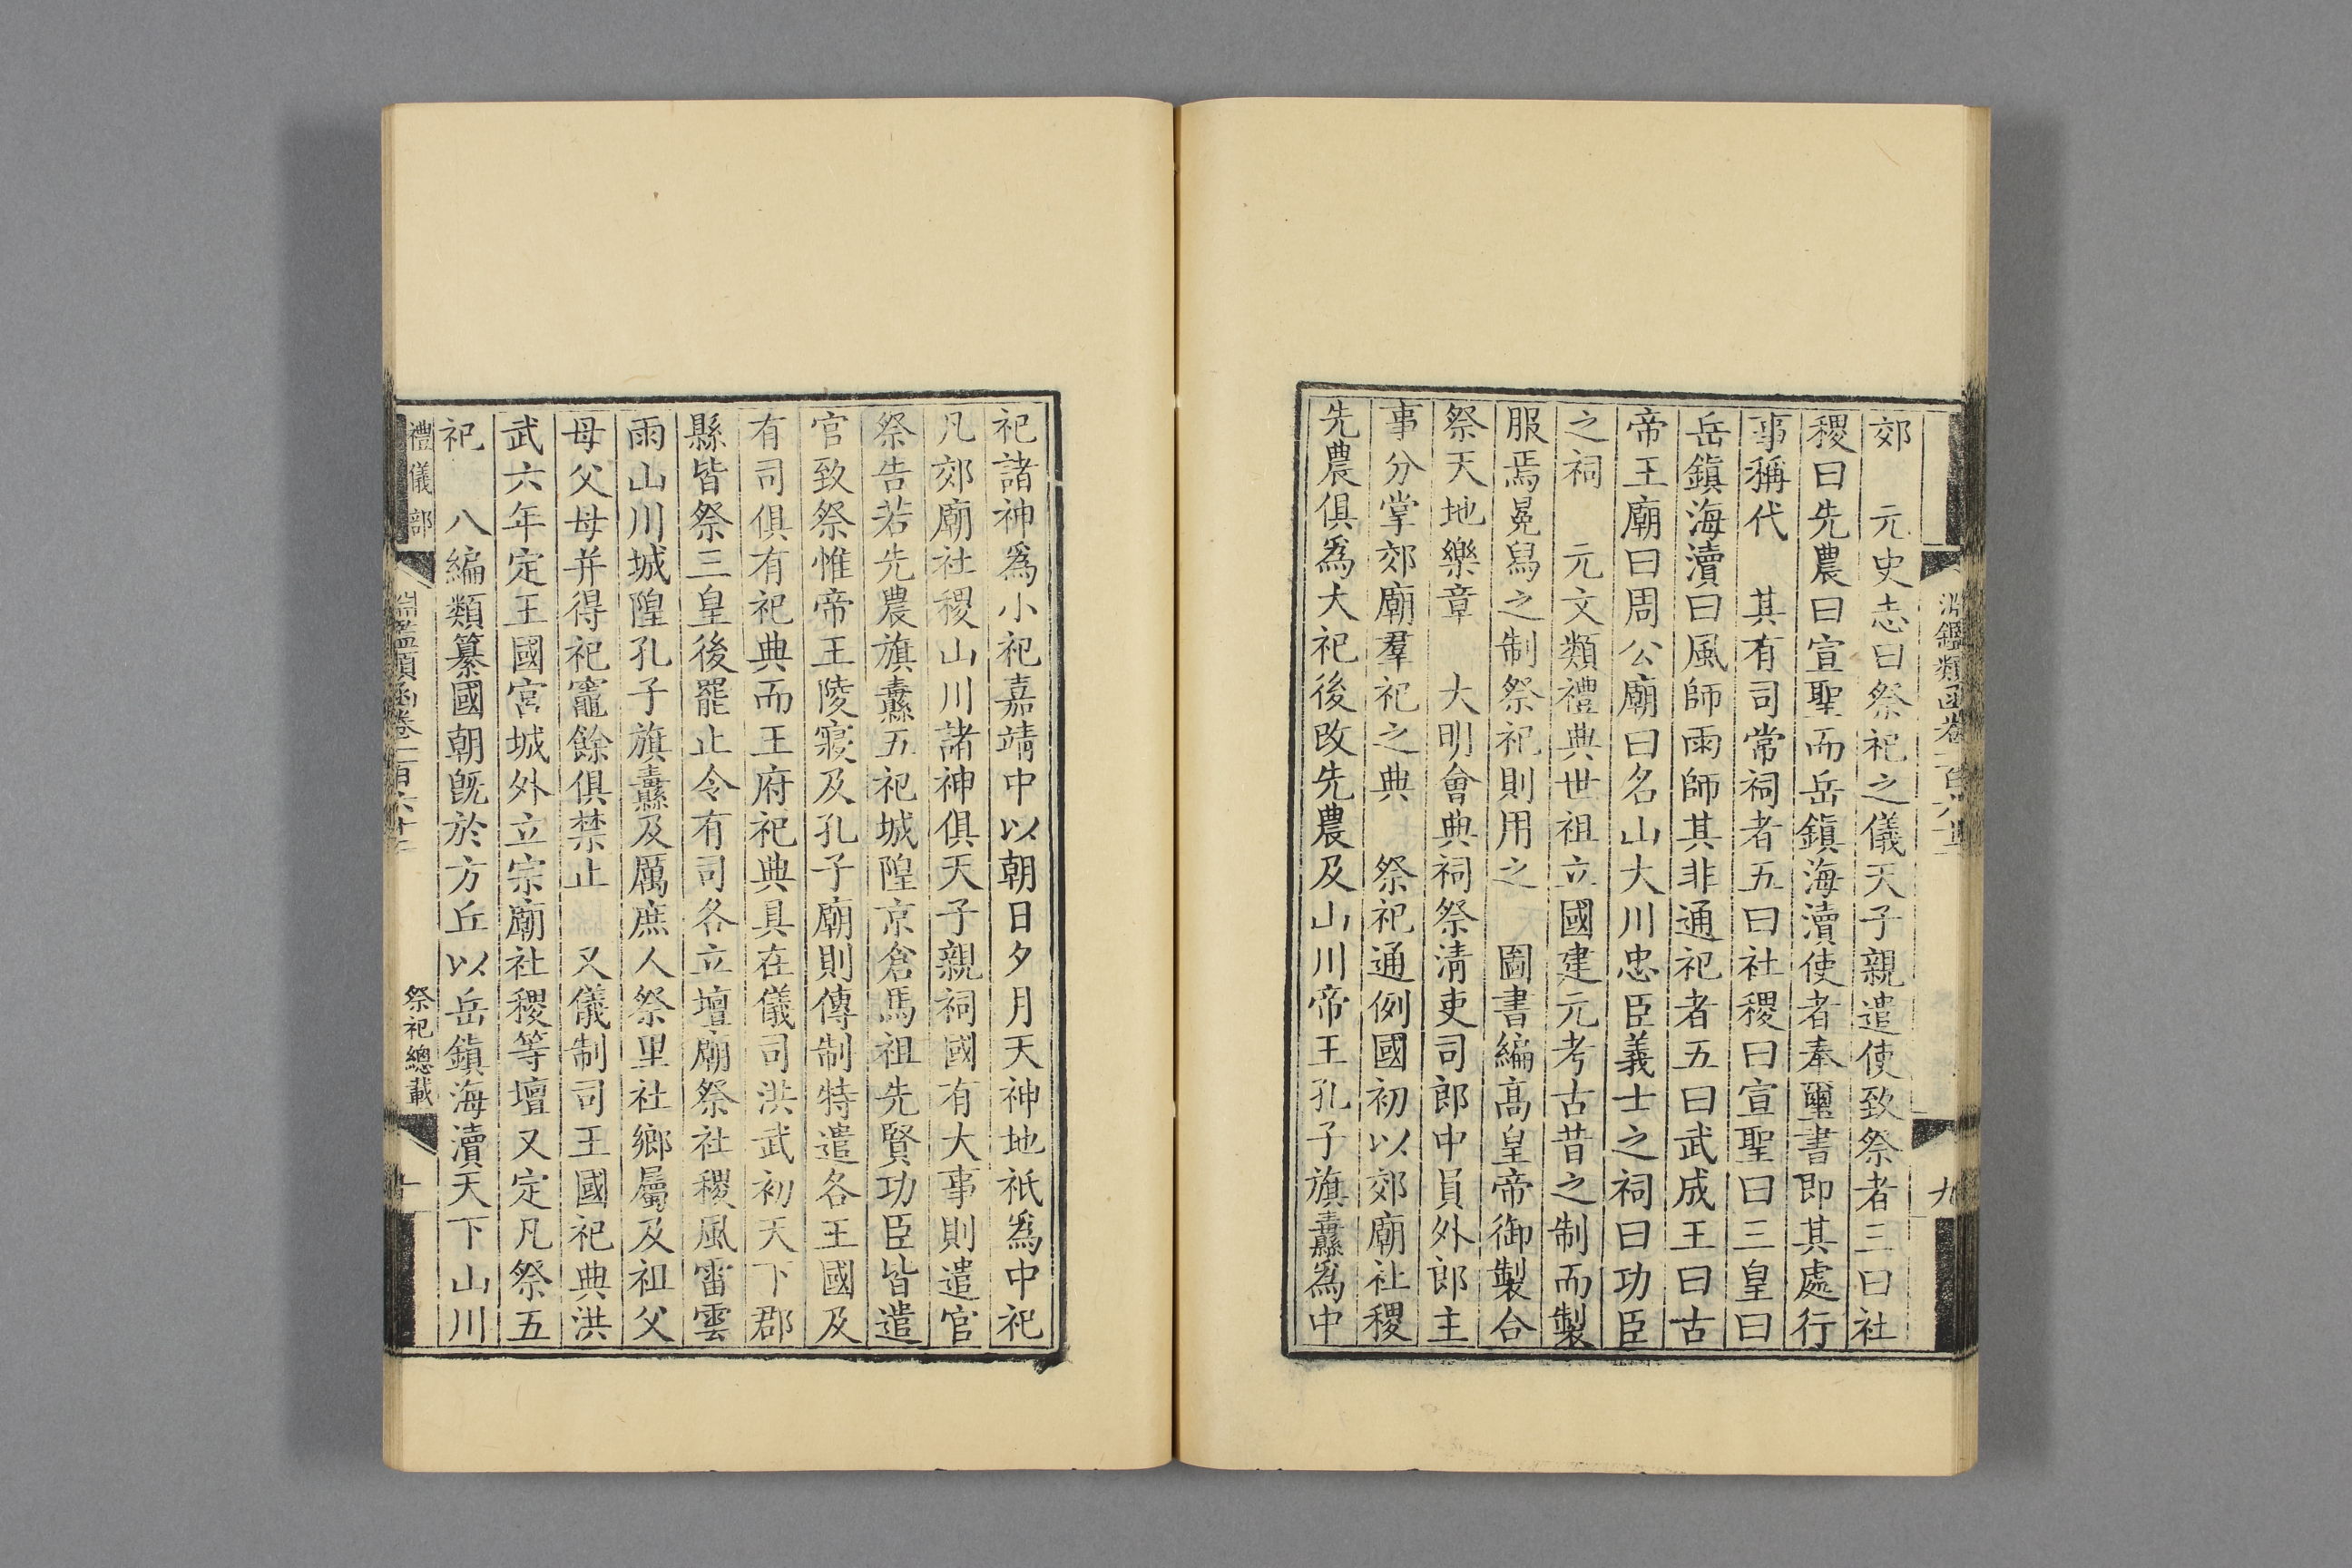 郊　元史志曰祭祀之儀天子親遣使致祭者三曰社
稷曰先農曰宣聖而岳鎮海瀆使者奉璽書即其處行
事稱代　其有司常祠者五曰社稷曰宣聖曰三皇曰
岳鎮海瀆曰風師雨師其非通祀者五曰武成王曰古
帝王廟曰周公廟曰名山大川忠臣義士之祠曰功臣
之祠　元文類禮典世祖立國建元考古昔之制而製
服焉冕舄之制祭祀則用之　圖書編高皇帝御製合
祭天地樂章　大明會典祠祭清吏司郎中員外郎主
事分掌郊廟羣祀之典　祭祀通例國初以郊廟社稷
先農俱爲大祀後改先農及山川帝王孔子旗纛爲中
祀諸神爲小祀嘉靖中以朝日夕月天神地祇爲中祀
凡郊廟社稷山川諸神俱天子親祠國有大事則遣官
祭告若先農旗纛五祀城隍京倉馬祖先賢功臣皆遣
官致祭惟帝王陵寢及孔子廟則傳制特遣各王國及
有司俱有祀典而王府祀典具在儀司洪武初天下郡
縣皆祭三皇後罷止令有司各立壇廟祭社稷風雷雲
雨山川城隍孔子旗纛及厲庶人祭里社鄉屬及祖父
母父母并得祀竈餘俱禁止　又儀制司王國祀典洪
武六年定王國宮城外立宗廟社稷等壇又定凡祭五
祀　八編類纂國朝既於方丘以岳鎮海瀆天下山川
禮儀部
淵鑑類函卷一百六十
祭祀總載
九